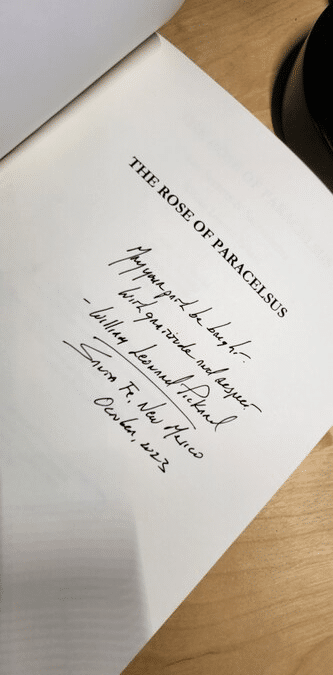 THE ROSE OF PARACELSUS
May your path be bright.
With gratitude and respect,
- William Leonard Pickard
Santa Fe, New Mexico
October, 2023